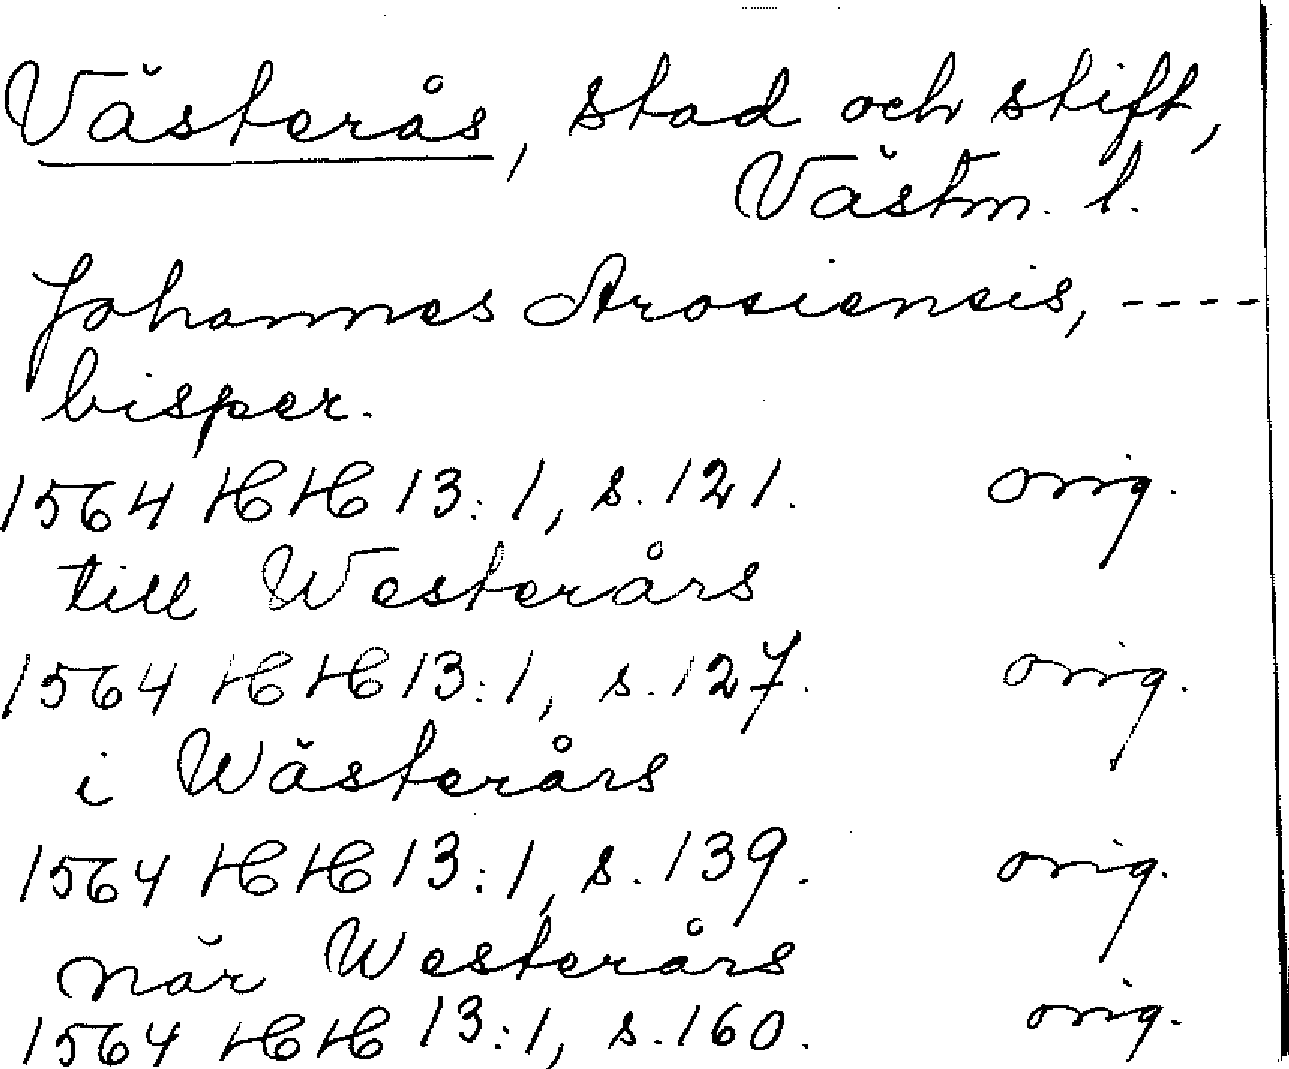 Västerås, stad och stift,
Västm. l.
Johannes Arosiensis, ----
bisper.
1564 HH 13:1, s. 121. orig.
till Westerårs
1564 HH 13:1, s. 127. orig.
i Wästerårs
1564 HH 13:1, s. 139. orig.
når Westerårs
1564 HH 13:1, s. 160. orig.